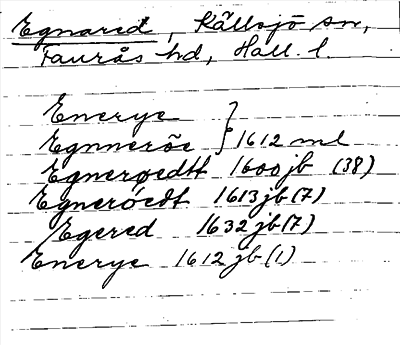 Egnared, Källsjö sn,
Faurås hd, Hall. l.
Enerye
Egnneröe } 1612 ml
Egnerøedtt 1600 jb (38)
Egneröedt 1613 jb (7)
Egered 1632 jb (7)
Enerye 1612 jb (1)